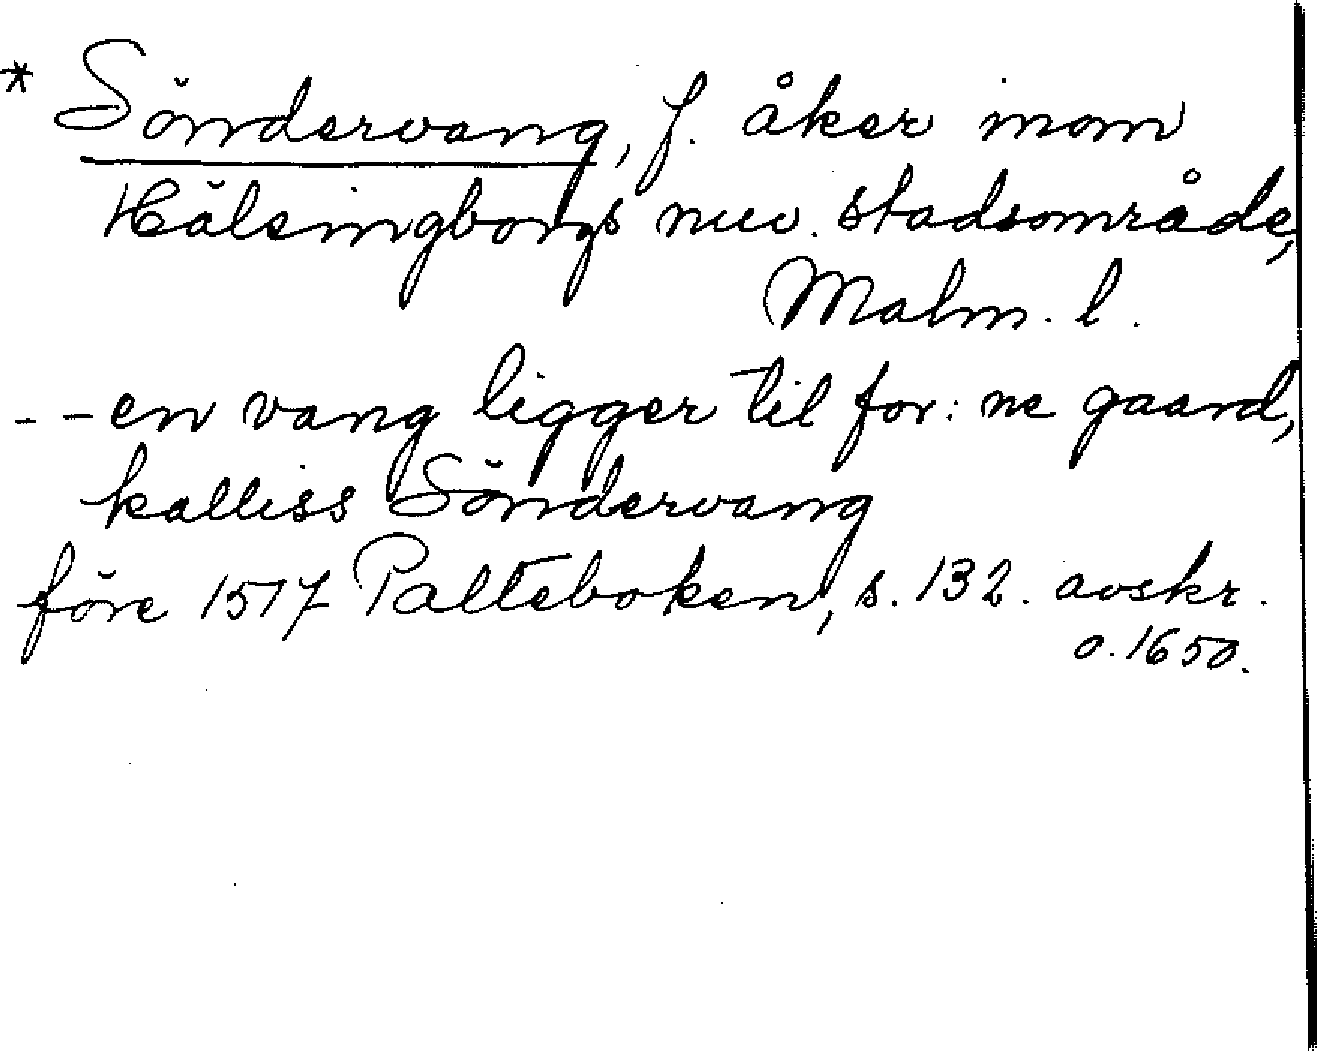 * Söndervang, f. åker inom
Hälsingborgs nuv. stadsområde,
Malm. l.
- - en vang ligger til for: ne gaard,
kalliss Söndervang
före 1517 Palteboken, s. 132. avskr.
o. 1650.